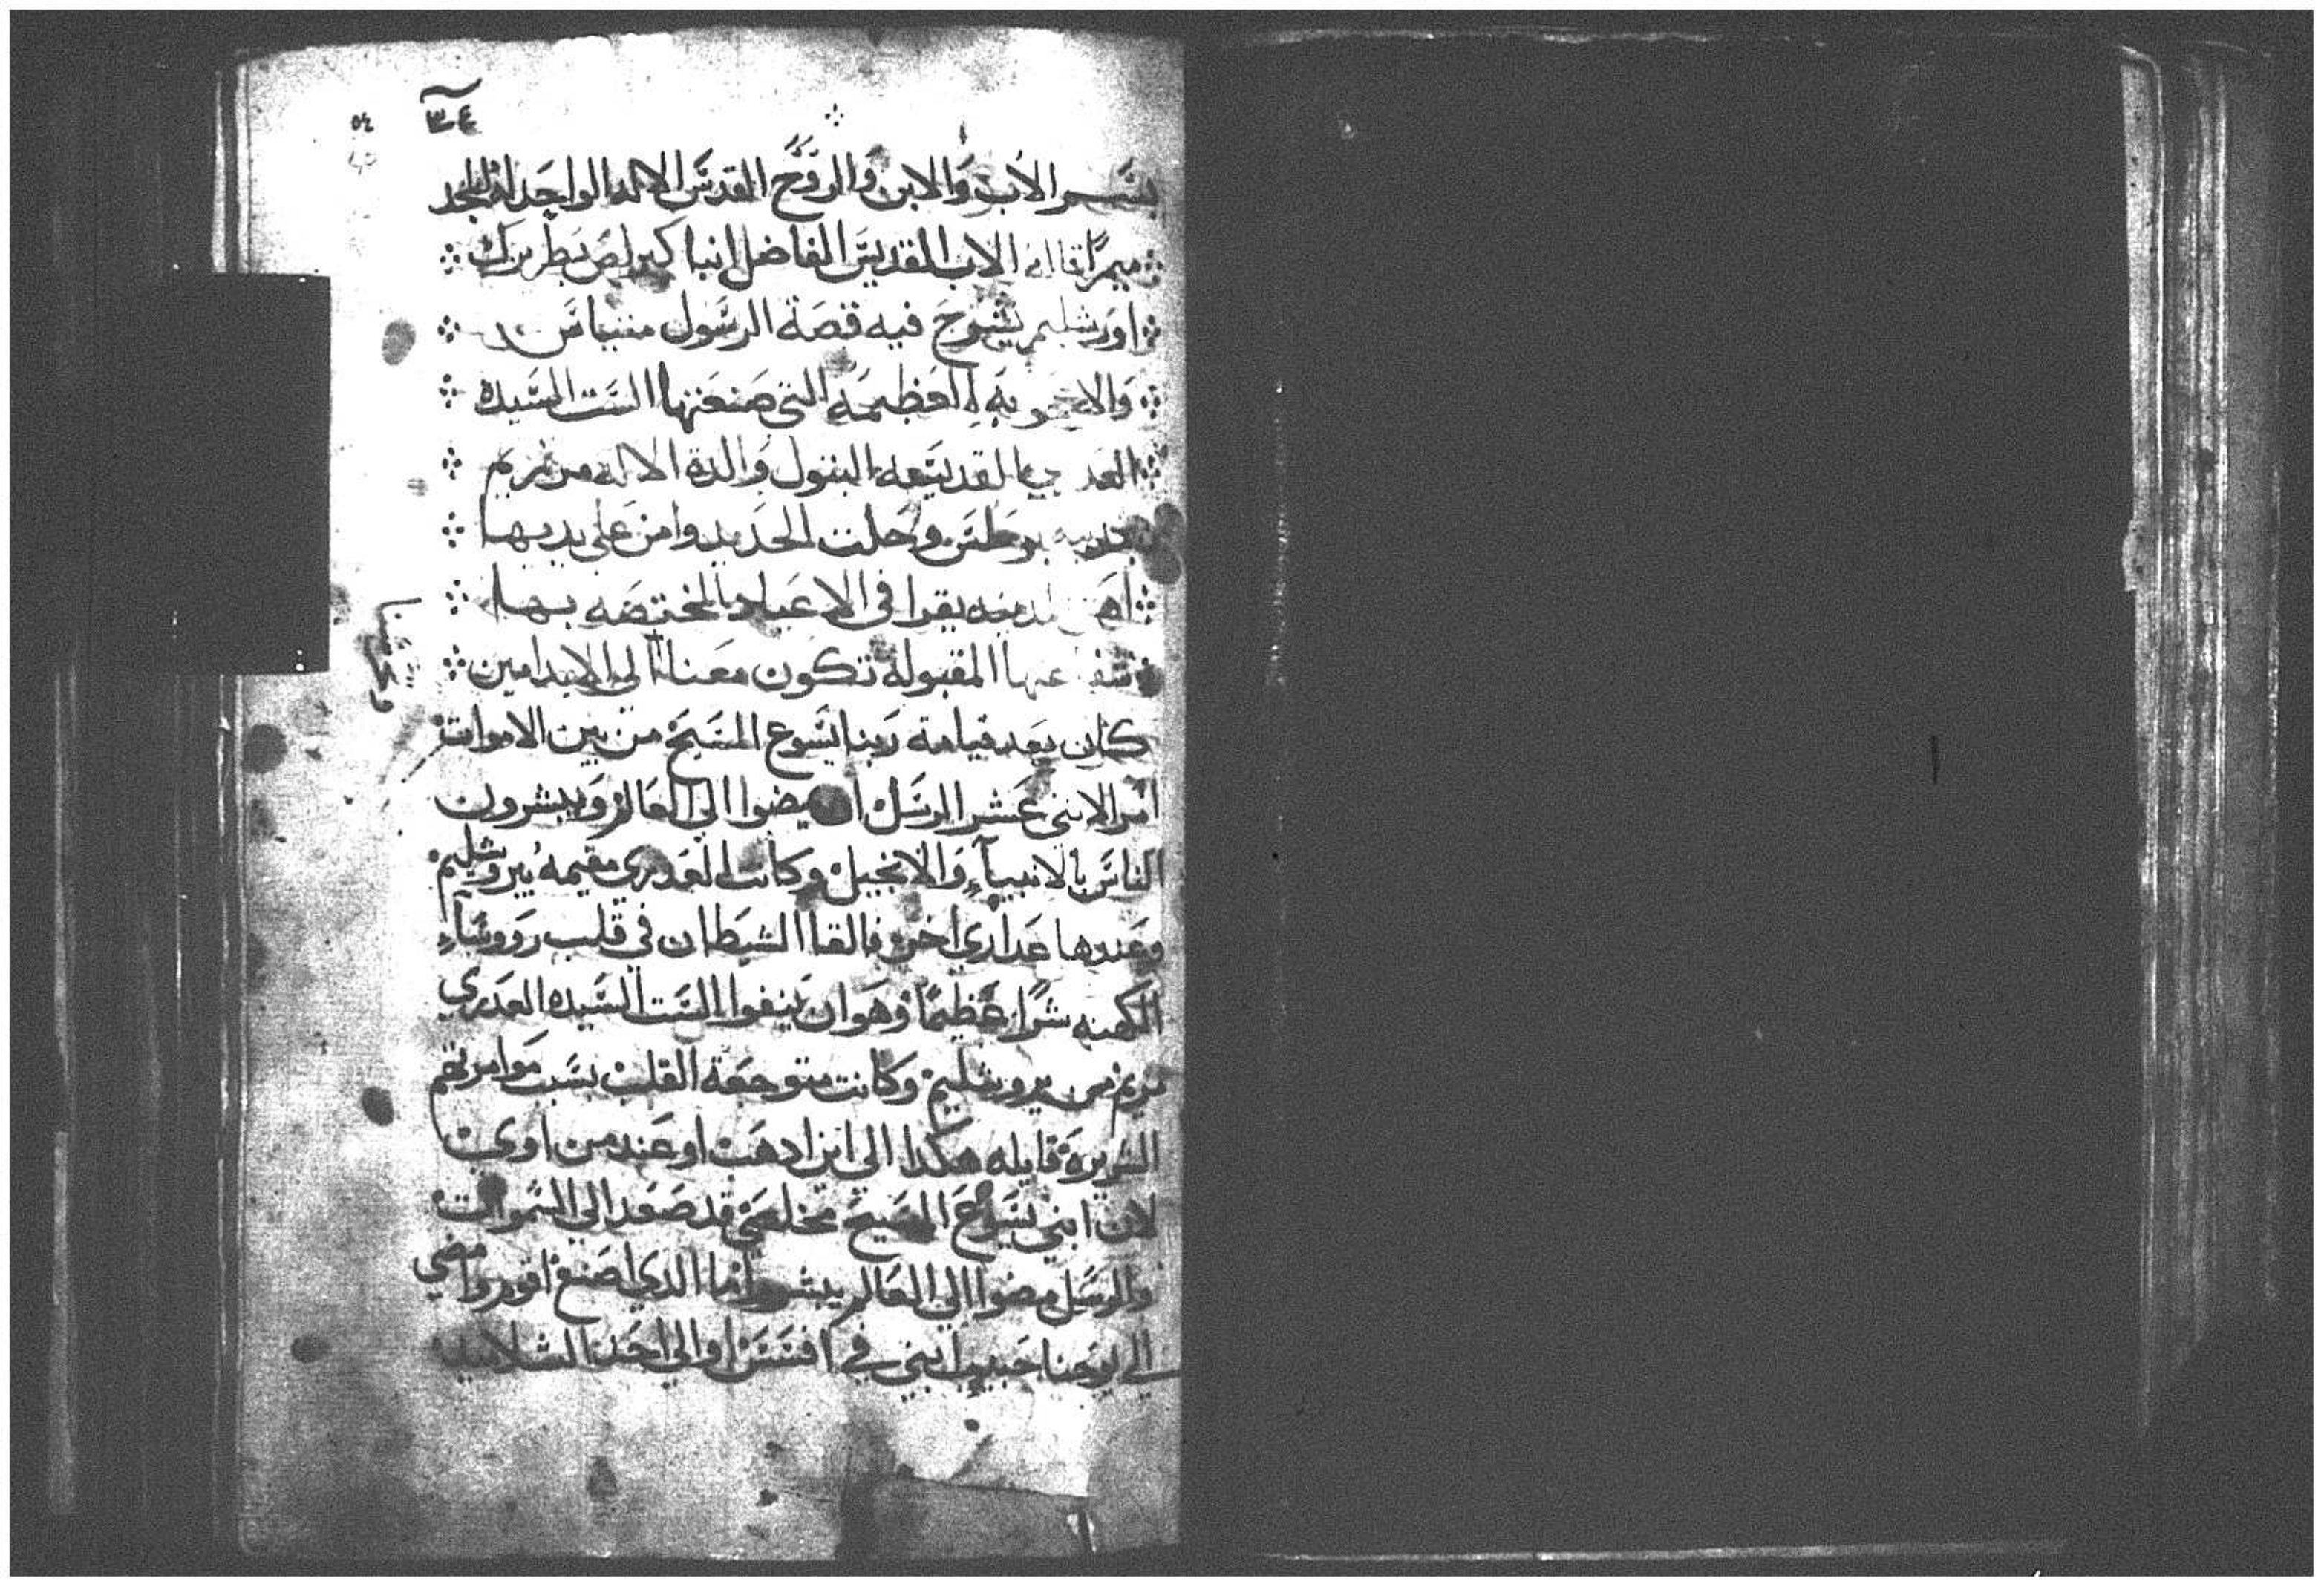 ٥٤
بسم الاب والابن والروح القدس الاله الواحد له المجد
ميمرًا قاله الاب القديس الفاضل انبا كيرلص بطريرك
اورشليم يشرح فيه قصة الرسول متياس
والاعجوبه العظيمه التي صنعتها الست السيده
العدري القديسه البتول والدة الاله مرتمريم
بمدينة برطس وحلت الحديد وامن علي يديها
اهل المدينه يقرا في الاعياد المختصه بها
شفاعتها المقبولة تكون معنا الي الابد امين
كان بعد قيامة ربنا يسوع المسيح من بين الاموات
امر الاثني عشر الرسل ان يمضوا الي العالم ويبشرون
الناس بالانبيآء والانجيل وكانت العدري مقيمه بيروشليم
وعندها عداري اخر فالقا الشيطان في قلب رووسآء
الكهنه شرًا عظيمًا وهو ان ينفوا الست السيده العدري
مريم من يروشليم وكانت متوجعة القلب بسبب موامرتهم
الشريرة قايله هكدا الي اين ادهب او عند من اوي
لان ابني يسوع المسيح مخلصي قد صعد الي السموات
والرسل مضوا الي العالم يبشروا ما الدي اصنع اقوم وامضي
الي يوحنا حبيب ابني في افسس او الي احد التلاميد